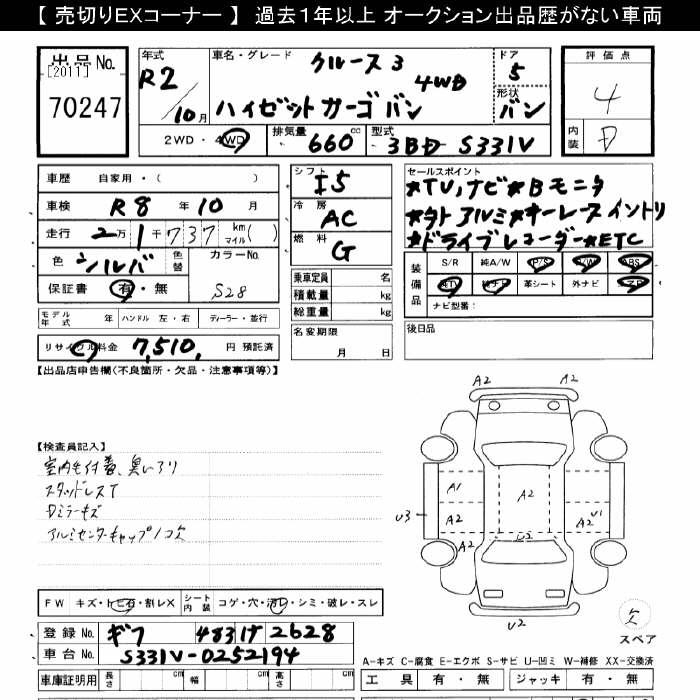 【 売切りEXコーナー 】 過去1年以上 オークション出品歴がない車両
出品 No. [2011] 70247
年式 R2/10月
車名・グレード クルーズ 3 4WD
ハイゼットカーゴ バン
ドア 5
形状 バン
評価点 4
内装 D
2WD ・ 4WD
排気量 660 cc
型式 3BD S331V
車歴 自家用・( )
車検 R8 年 10 月
走行 2万1千737 km マイル( )
色 シルバ 色替
カラーNo. S28
保証書 有・無
シフト I5
冷房 AC
燃料 G
乗車定員 名
積載量 kg
総重量 kg
セールスポイント
★TV,ナビ★Bモニタ
★外アルミ★キーレスイントリ
★ドライブレコーダー★ETC
装備品 S/R 純A/W P/S P/W ABS
純TV 純ナビ 革シート 外ナビ エアB
ナビ型番:
モデル年式 年 ハンドル 左・右 ディーラー・並行
リサイクル料金 7,510, 円 預託済
名変期限 月 日
後日品
【出品店申告欄(不良箇所・欠品・注意事項等)】
【検査員記入】
室内毛付着、臭い有り
スタッドレスT
Dミラーキズ
アルミセンターキャップ1コ欠
FW キズ・トビ石・割レX シート内装 コゲ・穴・汚レ・シミ・破レ・スレ
A2 A2
A1
A2 A2 A2 U1
U3
A2 U2
U2
欠
スペア
登録 No. ギフ 483 け 2628
車台 No. S331V-0252194
A-キズ C-腐食 E-エクボ S-サビ U-凹ミ W-補修 XX-交換済
車庫証明用 長さ cm 幅 cm 高さ cm
工具 有・無 ジャッキ 有・無